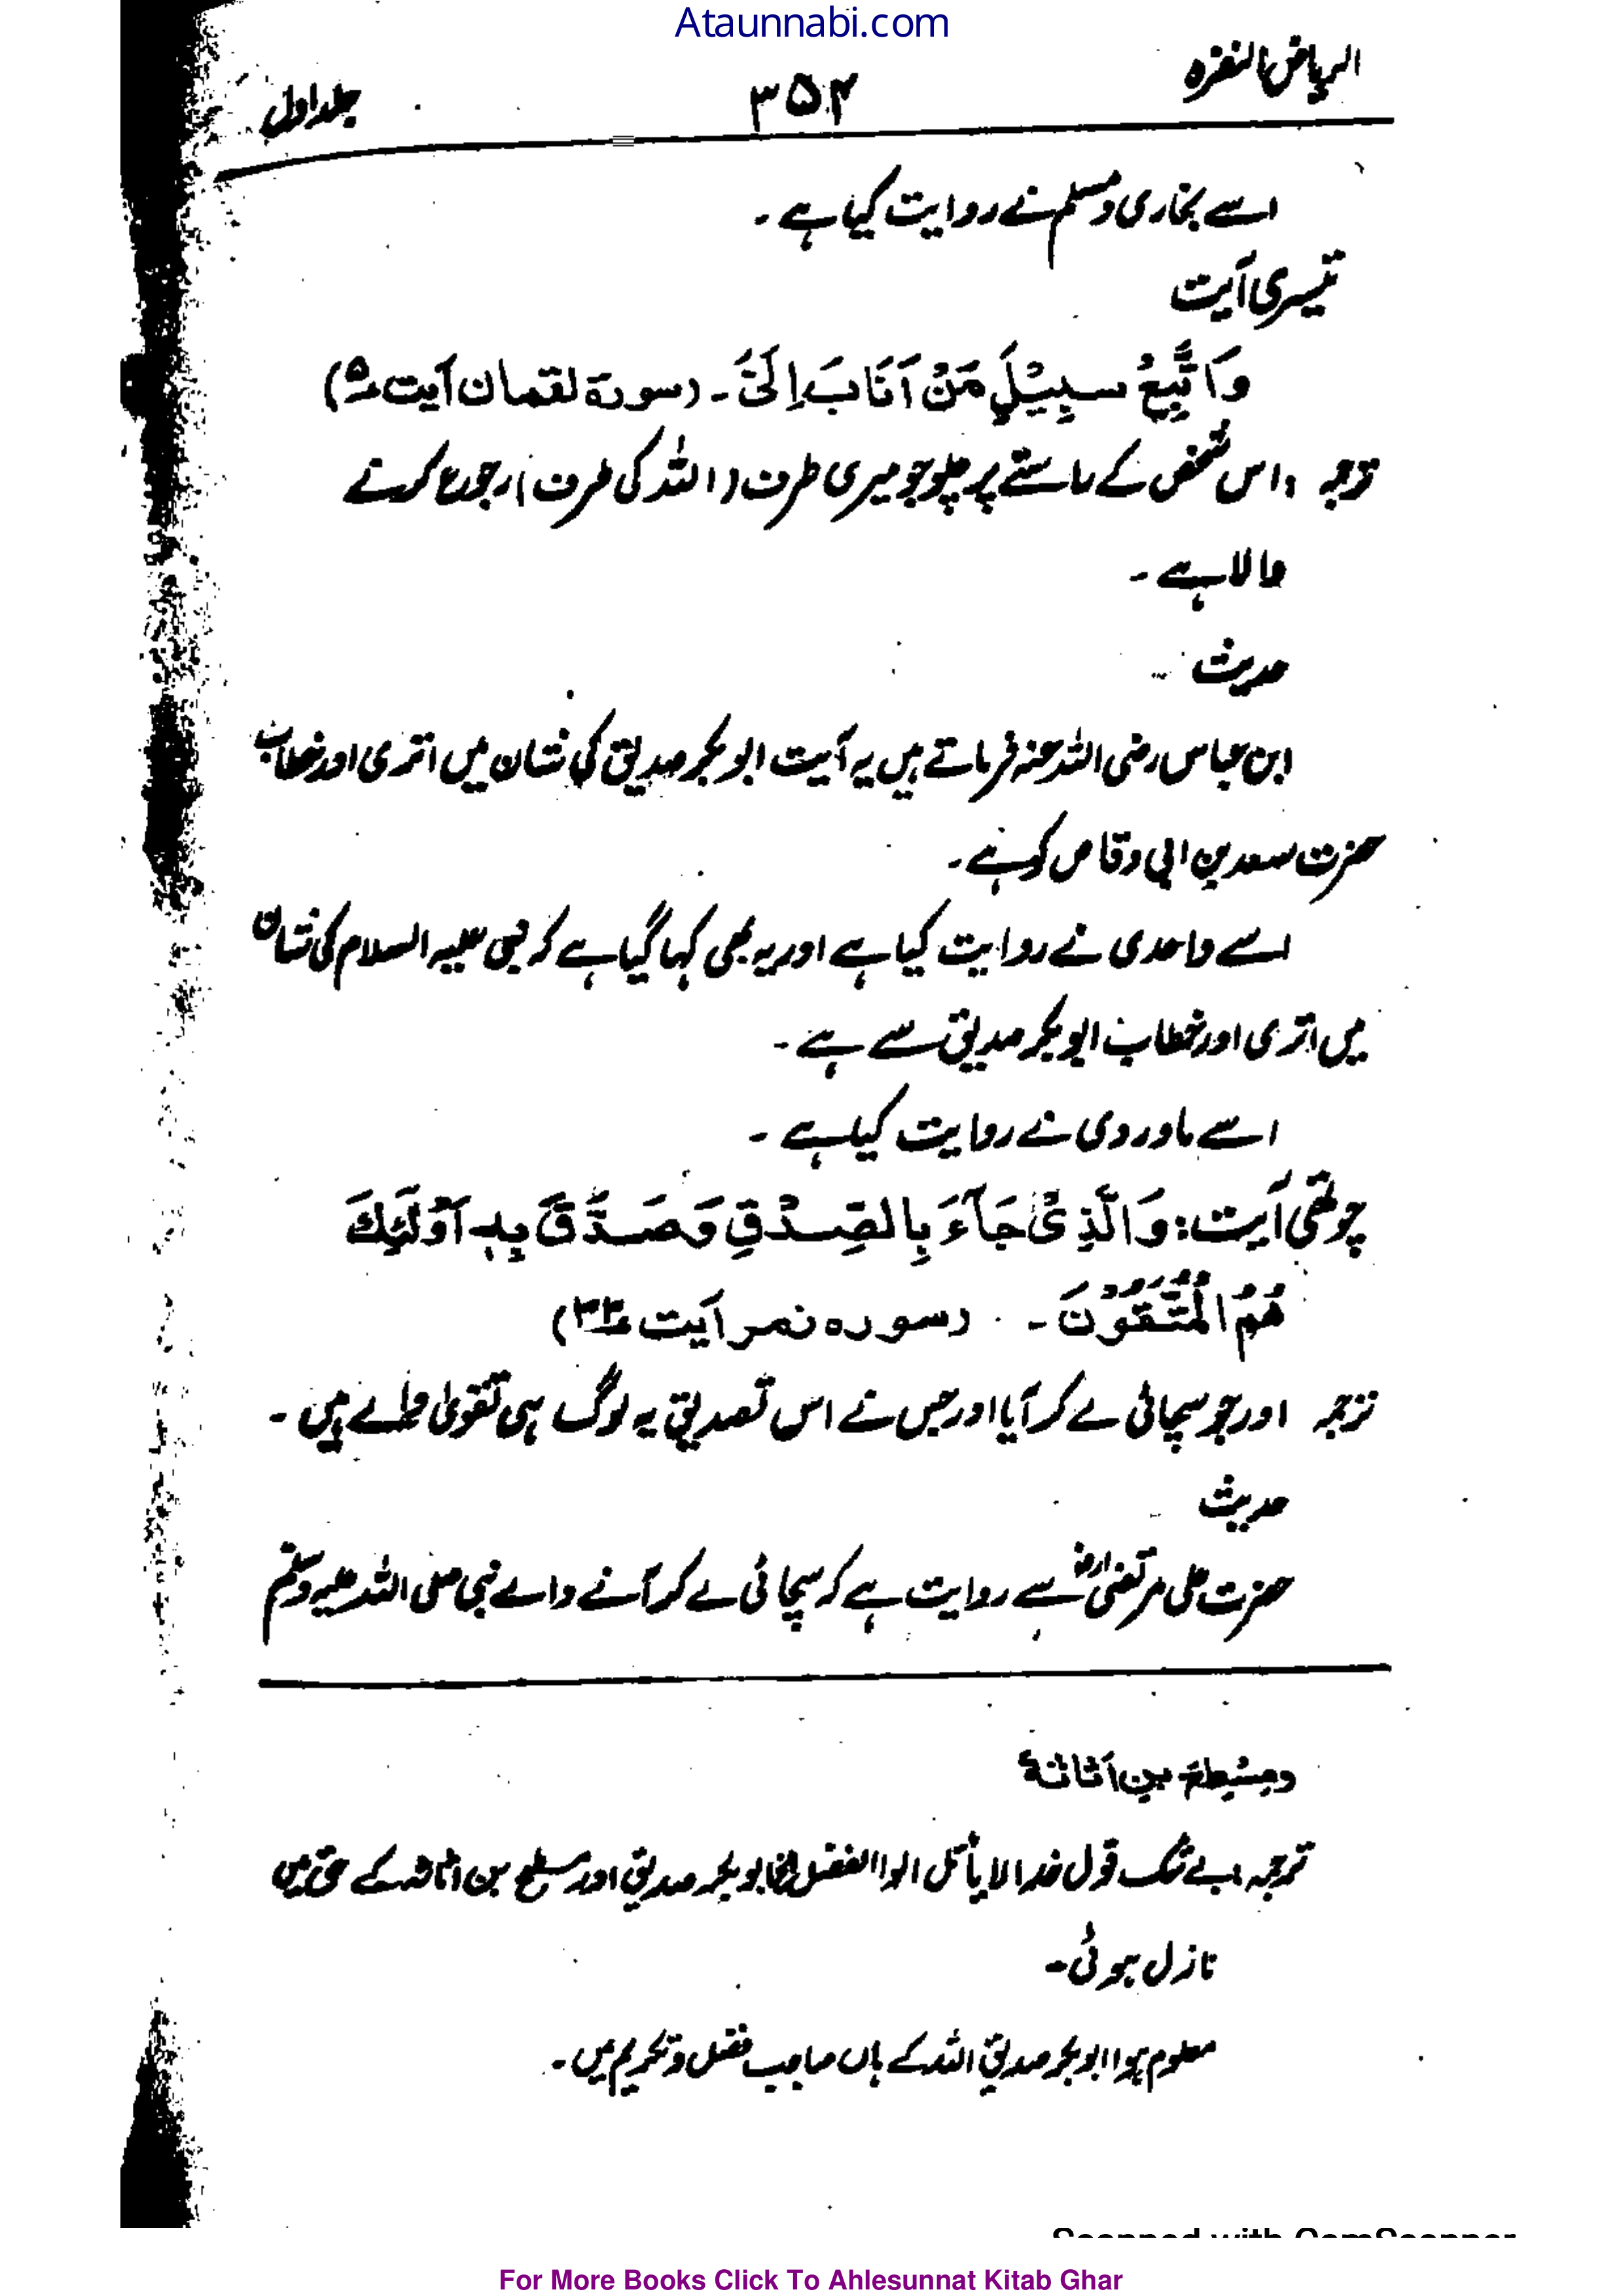 Ataunnabi.com
الریاض النضرہ
۳۵۴
جلد اول
اسے بخاری و مسلم نے روایت کیا ہے ۔
تیسری آیت
وَاتَّبِعْ سَبِيْلَ مَنْ اَنَابَ اِلَیَّ ۔ (سورۃ لقمان آیت ۵)
ترجمہ : اس شخص کے راستے پر چلو جو میری طرف (اللہ کی طرف) رجوع کرنے
والا ہے ۔
حدیث
ابن عباس رضی اللہ عنہ فرماتے ہیں یہ آیت ابوبکر صدیق کی شان میں اتری اور خطاب
حضرت سعد بن ابی وقاص کو ہے ۔
اسے واحدی نے روایت کیا ہے اور یہ بھی کہا گیا ہے کہ نبی علیہ السلام کی شان
میں اتری اور خطاب ابوبکر صدیق سے ہے ۔
اسے ماوردی نے روایت کیا ہے ۔
چوتھی آیت : وَالَّذِیْ جَآءَ بِالصِّدْقِ وَصَدَّقَ بِهٖ اُولٰٓئِكَ
هُمُ الْمُتَّقُوْنَ ۔ (سورہ زمر آیت ۳۳)
ترجمہ اور جو سچائی لے کر آیا اور جس نے اس تصدیق یہ لوگ ہی تقویٰ والے ہیں ۔
حدیث
حضرت علی مرتضیٰؓ سے روایت ہے کہ سچائی لے کر آنے والے نبی صلی اللہ علیہ وسلم
ومسطح بن اثاثة
ترجمہ : بے شک قول خدا لا یأتل الوا الفضل الخ ابوبکر صدیق اور مسطح بن اثاثہ کے حق میں
نازل ہوئی ۔
معلوم ہوا ابوبکر صدیق اللہ کے ہاں صاحب فضل و تکریم ہیں ۔
Scanned with CamScanner
For More Books Click To Ahlesunnat Kitab Ghar